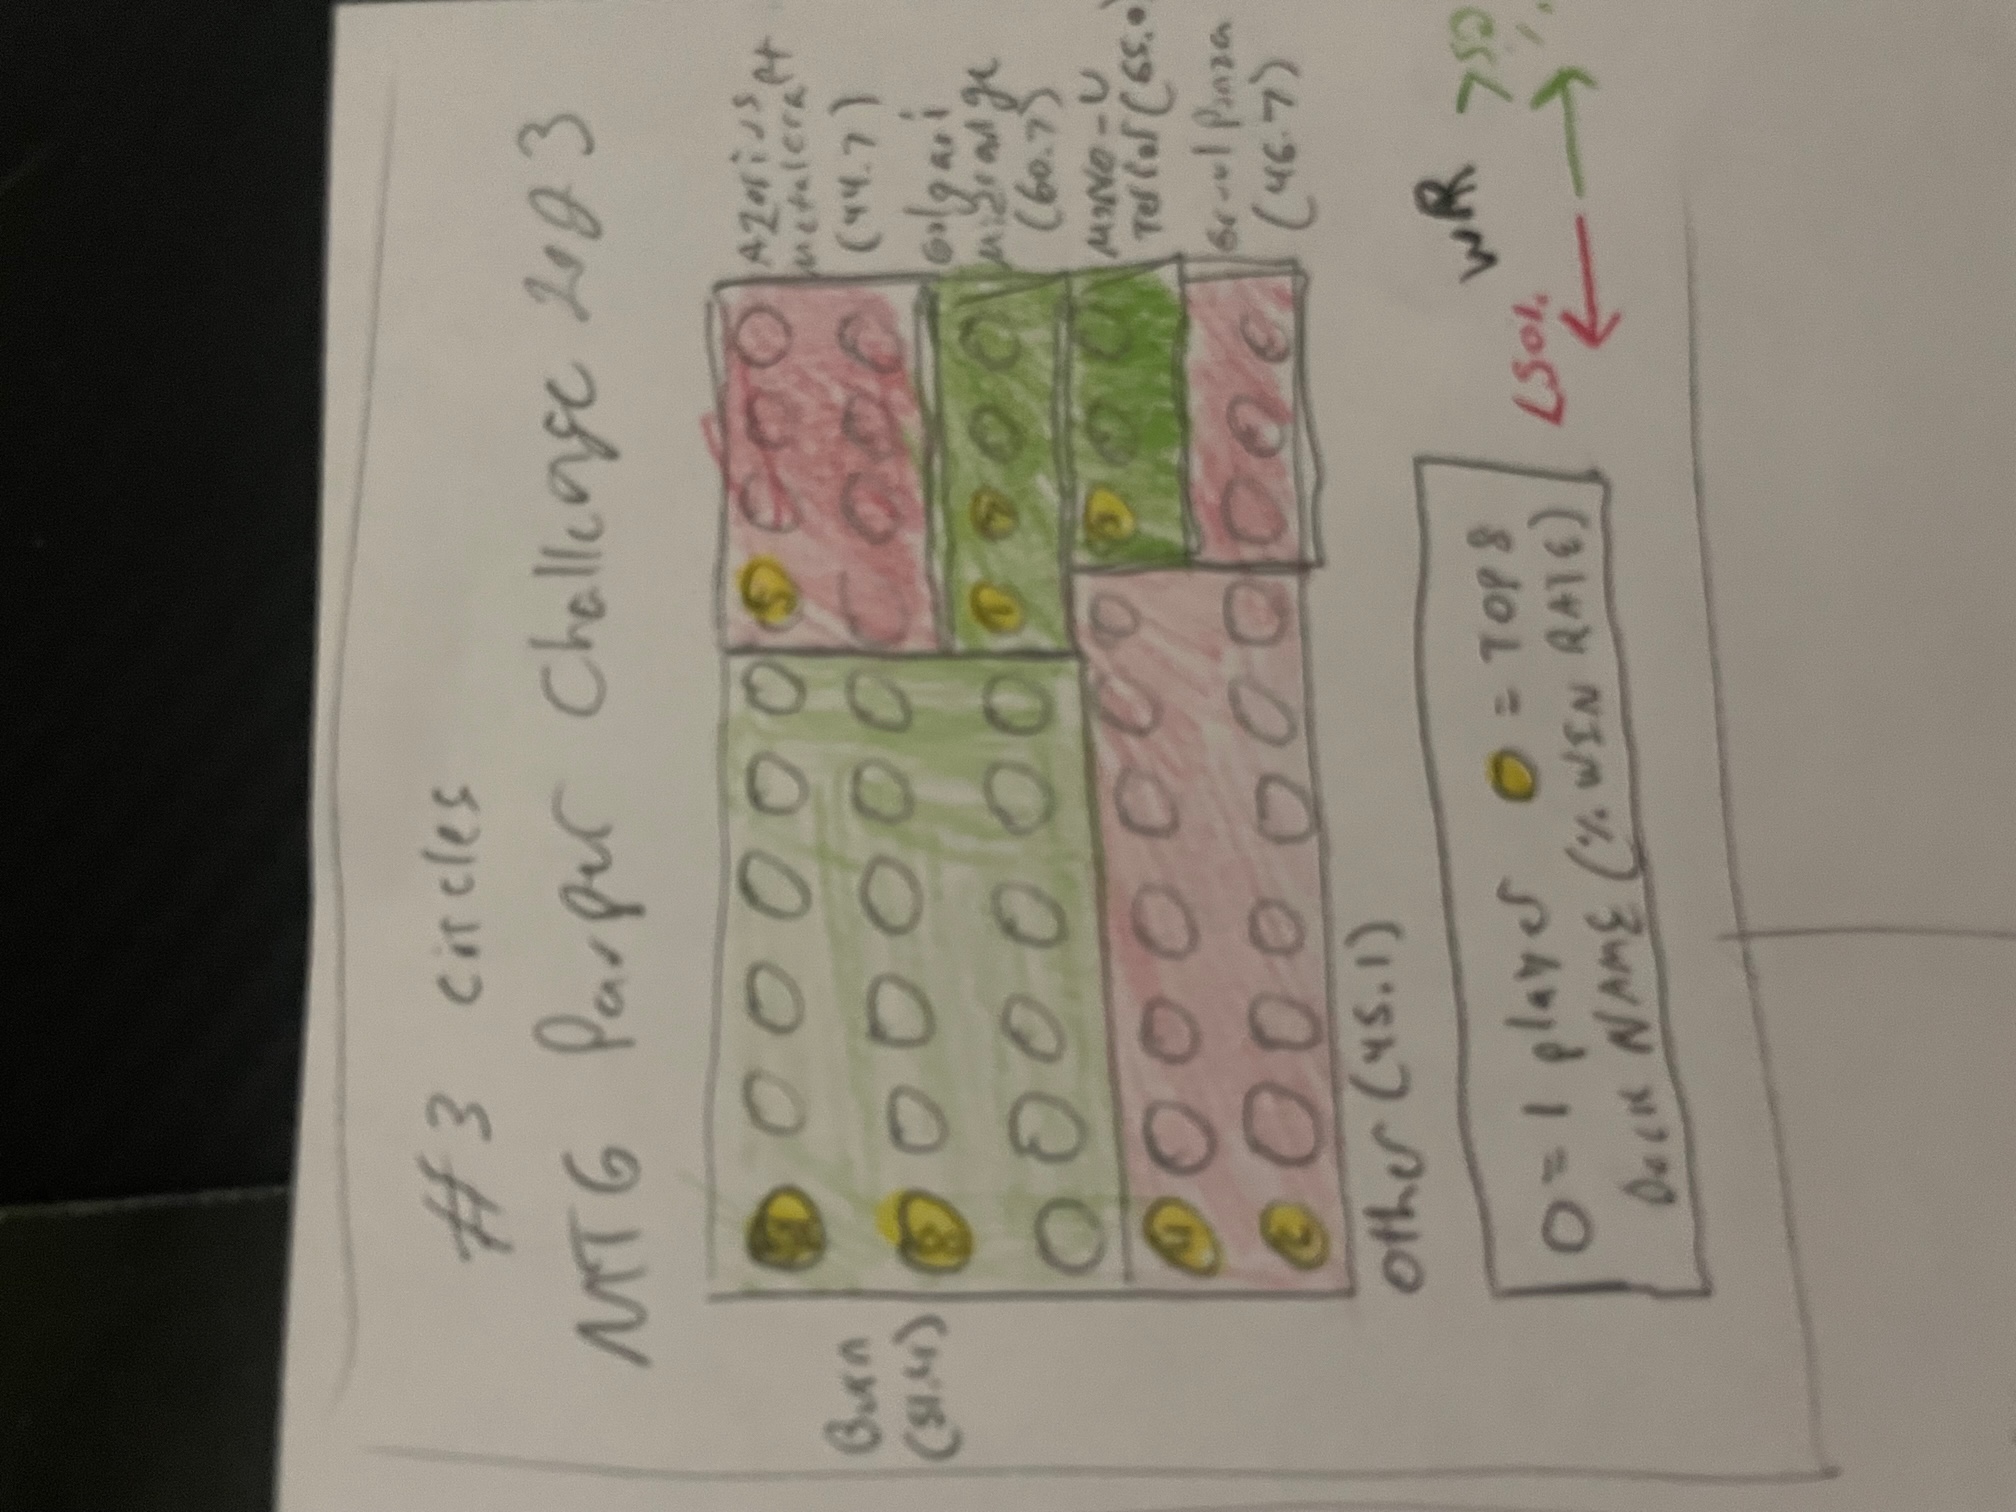 #3 circles
MTG Pauper Challenge 2023
Burn
(51.4)
Azorius
Metalcraft
(44.7)
Golgari
Midrange
(60.7)
MONO-U
Terror (65.0
Ponza
(46.7)
5
1
7
Other (45.1)
O = 1 player = TOP 8
Deck NAME (% WIN RATE)
WR
<50%
>50
%